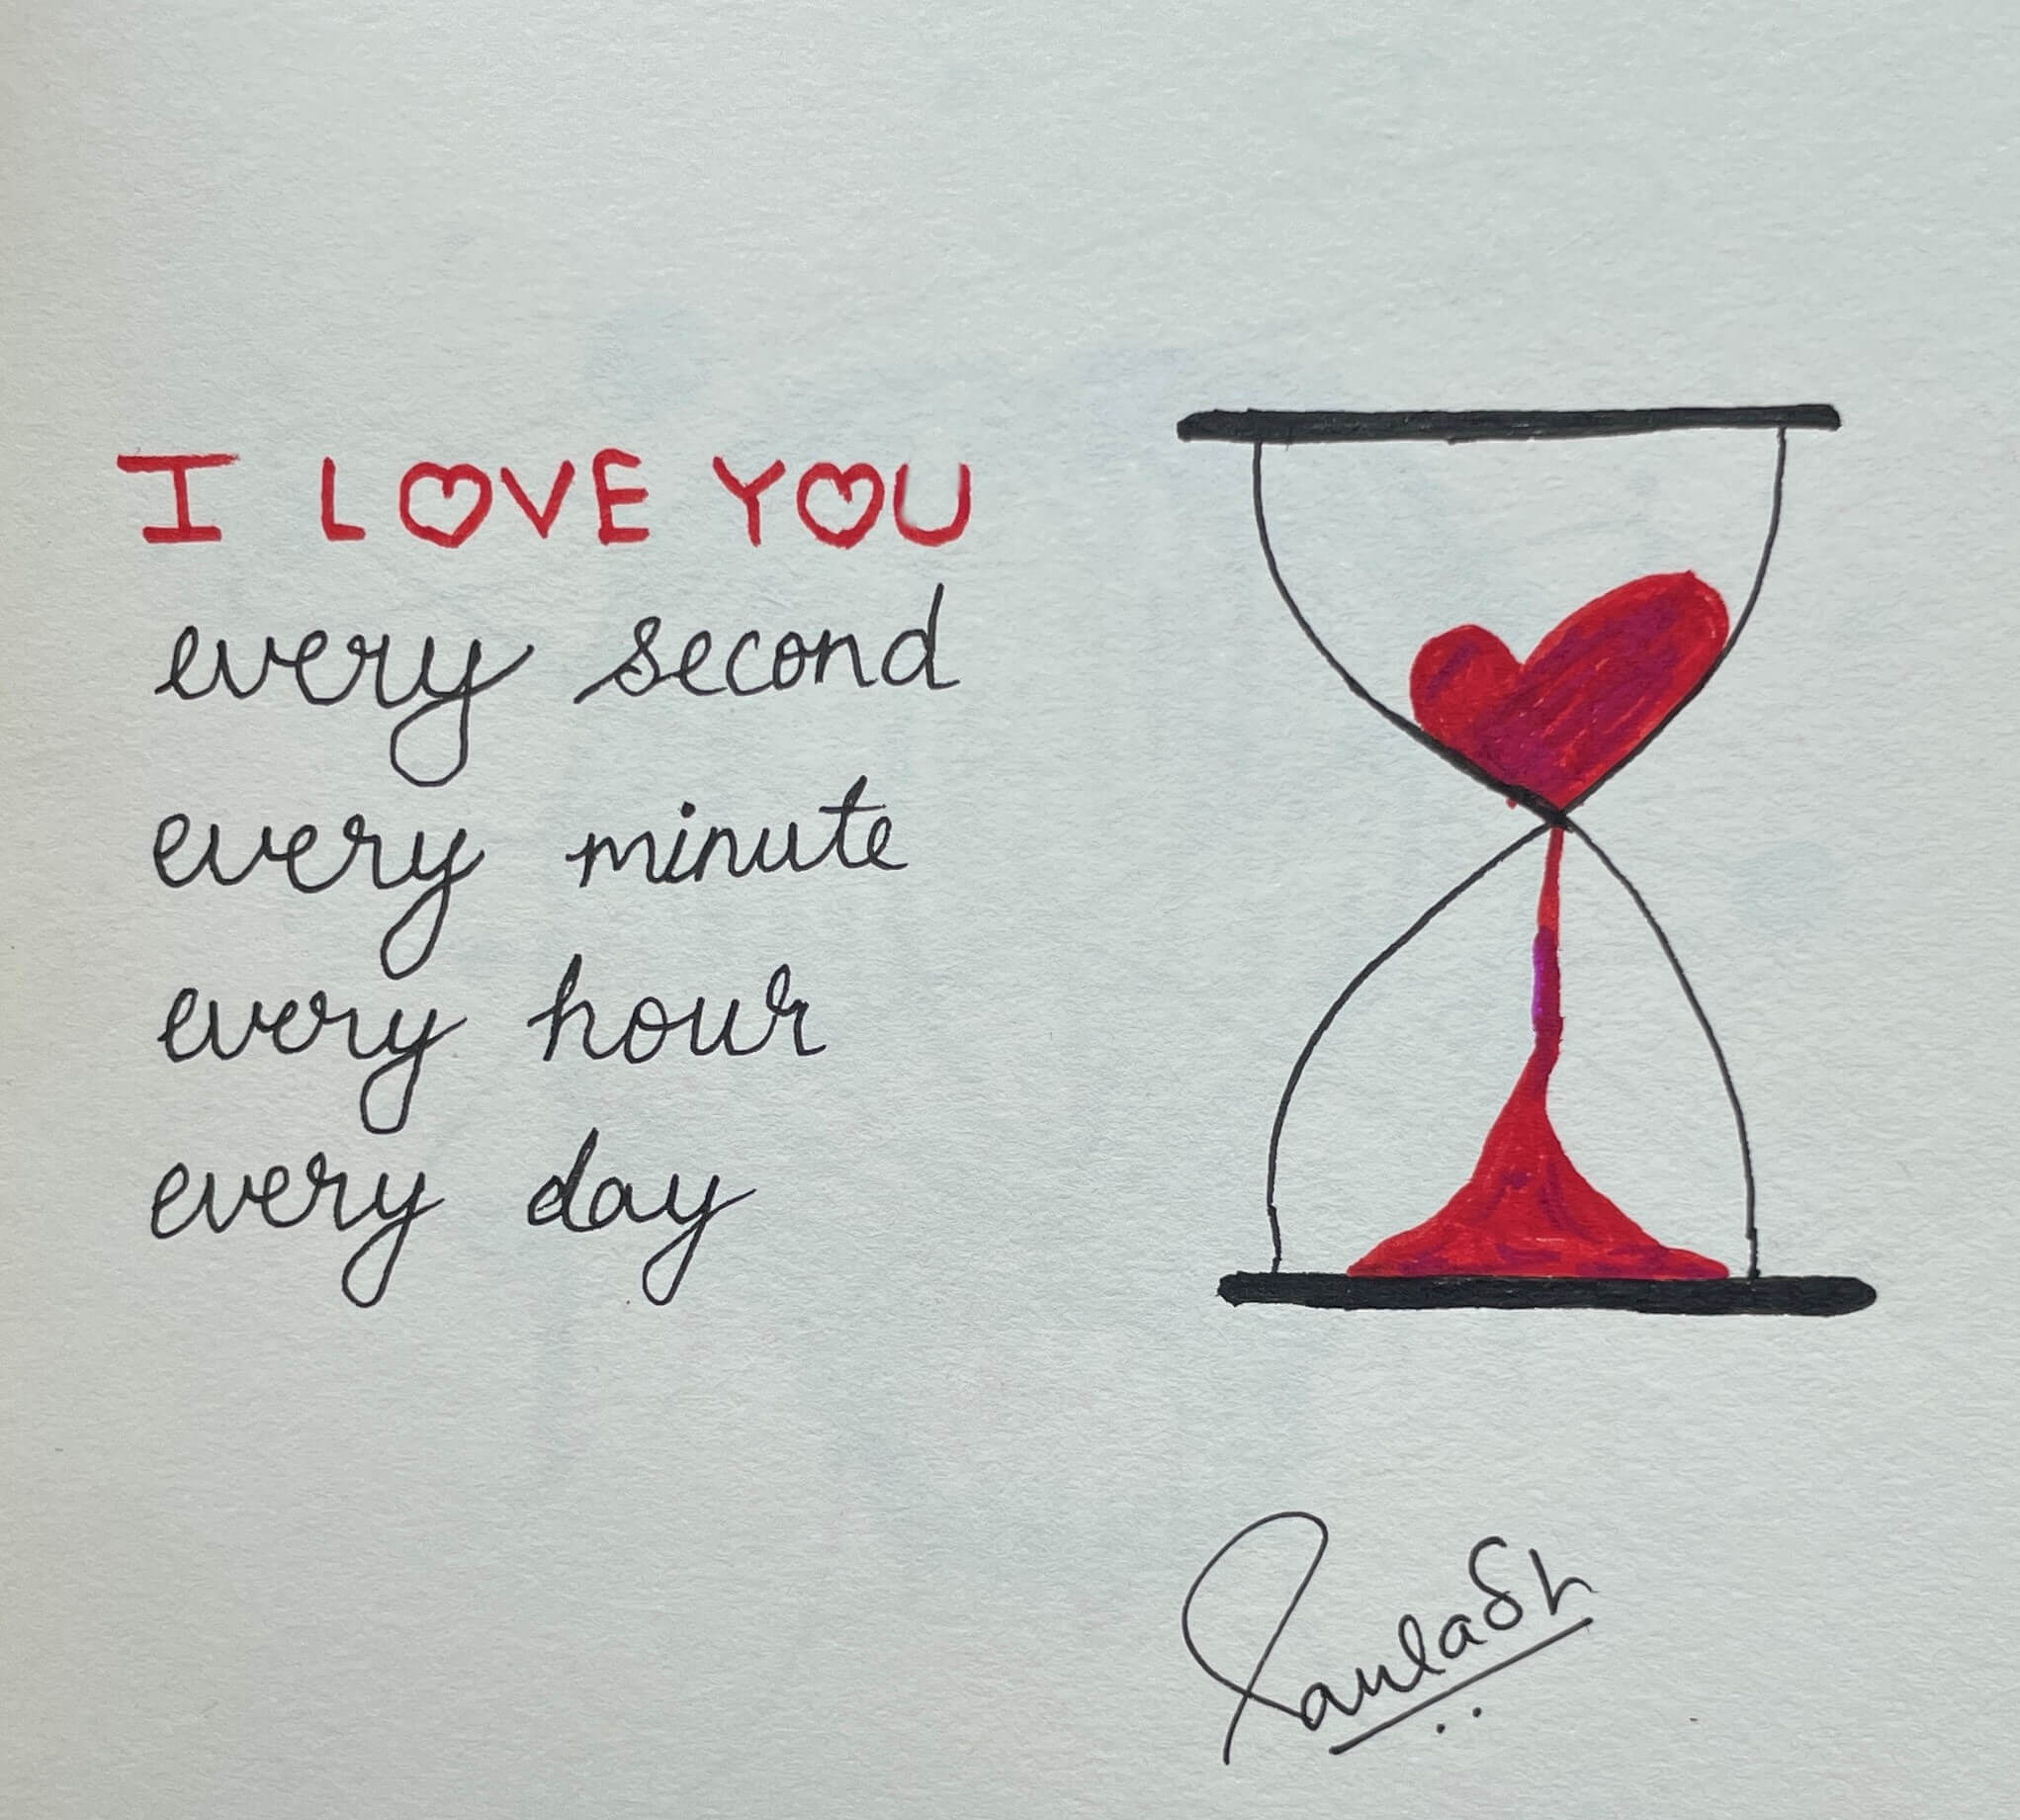 I LOVE YOU
every second
every minute
every hour
every day